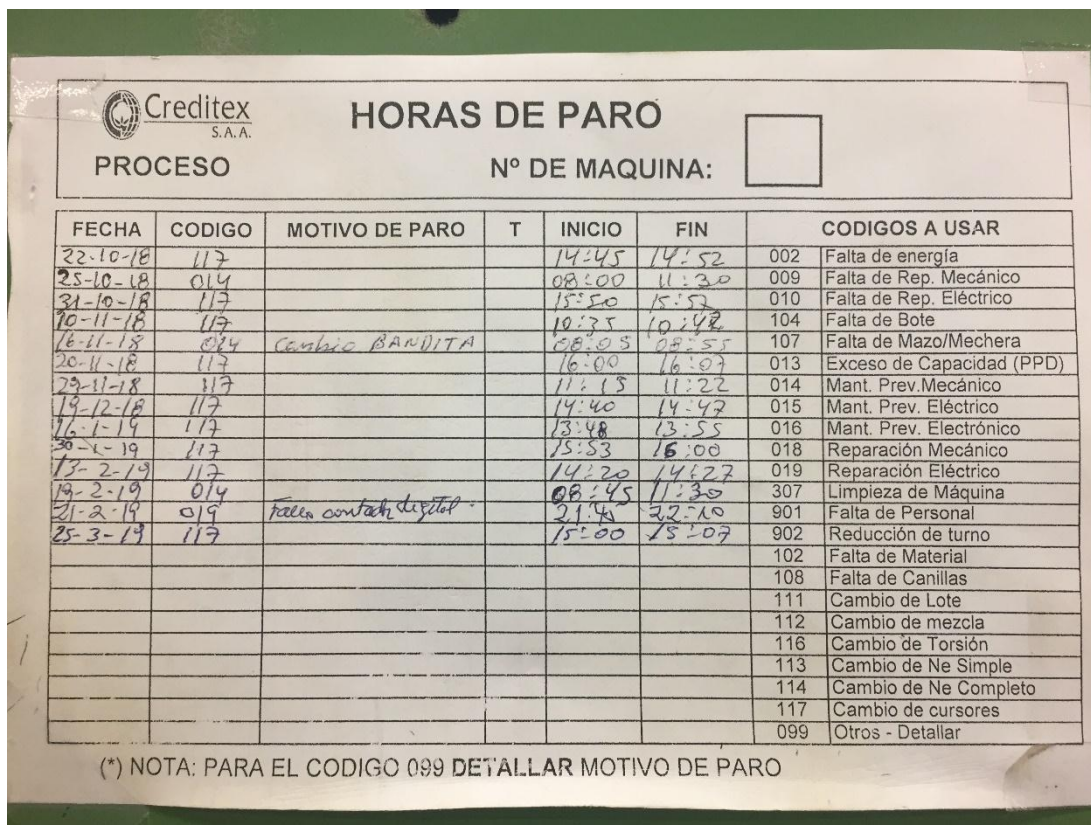 Creditex
S.A.A.
HORAS DE PARO
PROCESO Nº DE MAQUINA:
FECHA CODIGO MOTIVO DE PARO T INICIO FIN CODIGOS A USAR
22-10-18 117 14:45 14:52 002 Falta de energía
25-10-18 014 08:00 11:30 009 Falta de Rep. Mecánico
31-10-18 117 15:50 15:57 010 Falta de Rep. Eléctrico
10-11-18 117 10:35 10:42 104 Falta de Bote
16-11-18 014 Cambio BANDITA 08:05 08:55 107 Falta de Mazo/Mechera
20-11-18 117 16:00 16:07 013 Exceso de Capacidad (PPD)
29-11-18 117 11:15 11:22 014 Mant. Prev.Mecánico
19-12-18 117 14:40 14:47 015 Mant. Prev. Eléctrico
16-1-19 117 13:48 13:55 016 Mant. Prev. Electrónico
30-1-19 117 15:53 16:00 018 Reparación Mecánico
13-2-19 117 14:20 14:27 019 Reparación Eléctrico
19-2-19 014 08:45 11:30 307 Limpieza de Máquina
21-2-19 019 digital 21:45 22:10 901 Falta de Personal
25-3-19 117 15:00 15:07 902 Reducción de turno
102 Falta de Material
108 Falta de Canillas
111 Cambio de Lote
112 Cambio de mezcla
116 Cambio de Torsión
113 Cambio de Ne Simple
114 Cambio de Ne Completo
117 Cambio de cursores
099 Otros - Detallar
(*) NOTA: PARA EL CODIGO 099 DETALLAR MOTIVO DE PARO